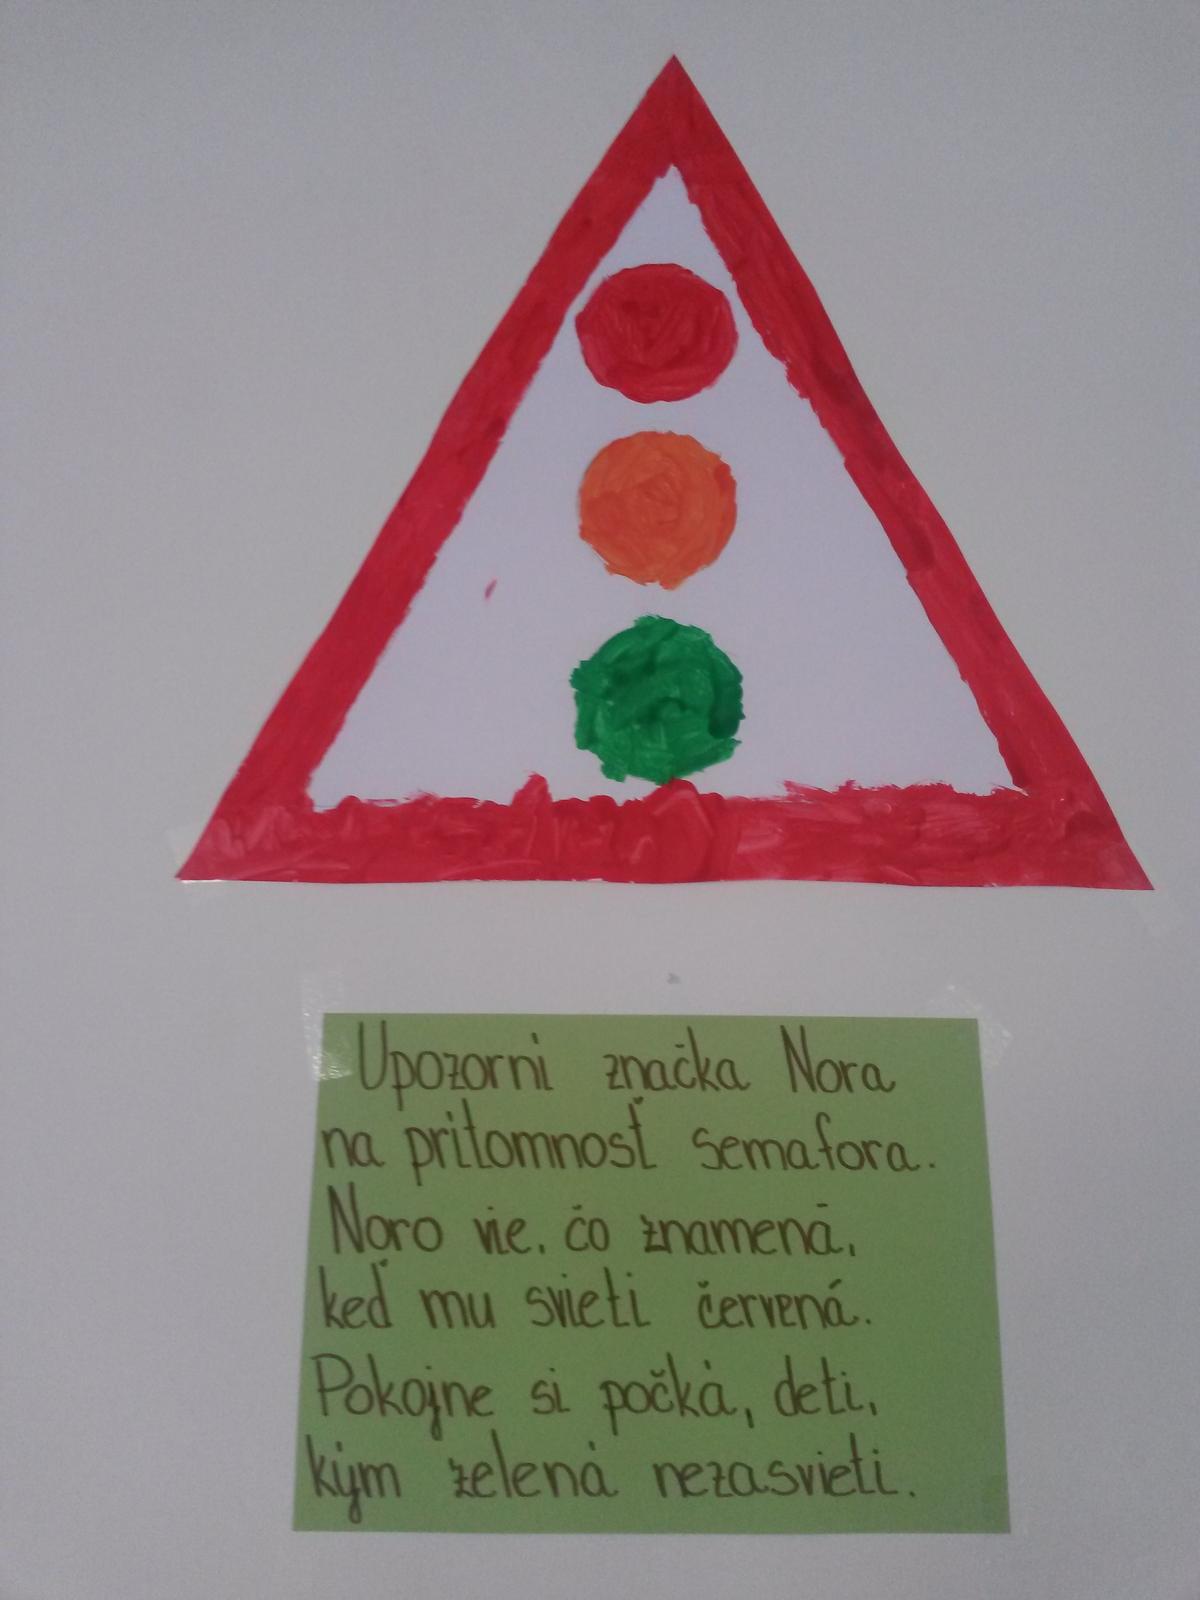 Upozorní značka Nora
na prítomnosť semafora.
Noro vie, čo znamená,
keď mu svieti červená.
Pokojne si počká, deti,
kým zelená nezasvieti.